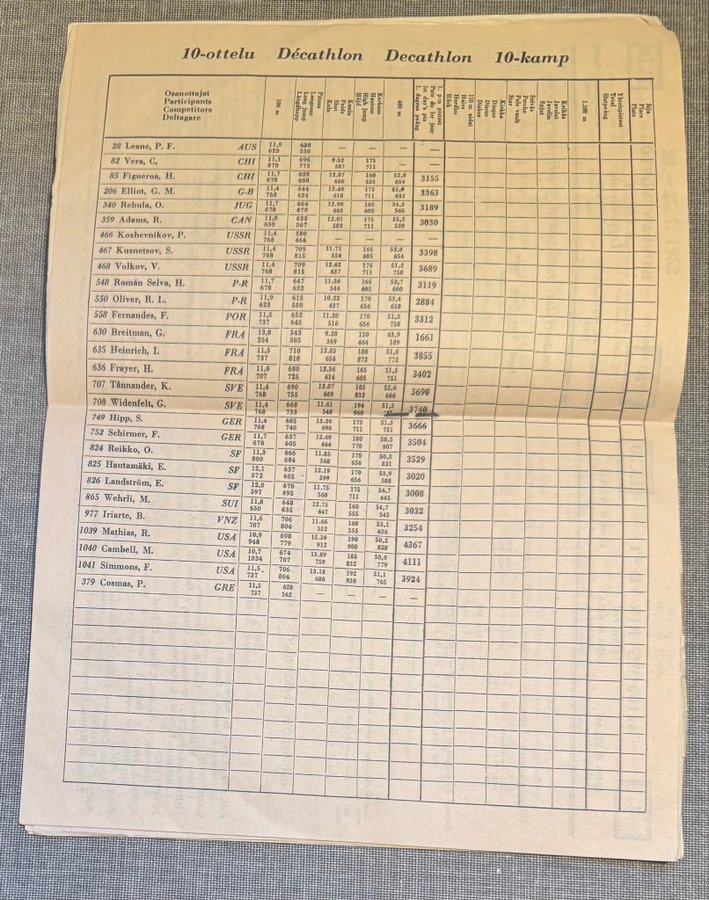 10-ottelu Décathlon Decathlon 10-kamp
Osanottajat
Participants
Competitors
Deltagare
100 m
Pituus
Longueur
Long jump
Längdhopp
Kuula
Poids
Shot
Kula
Korkeus
Hauteur
High jump
Höjd
400 m
1. p:n pisteet
Pts de 1er jour
1st day's pts
1. dagens poäng
110 m aidat
Haies
Hurdles
Häck
Kiekko
Disque
Discus
Diskus
Seiväs
Perche
Pole vault
Stav
Keihäs
Javelot
Javelin
Spjut
1,500 m
Yhteispisteet
Total
Total
Slutpoäng
Sija
Place
Place
Plats
28 Leane, P. F. AUS 11,9 638 — — —
623 550
82 Vera, C, CHI 11,1 696 9.52 175 — —
870 773 387 711
85 Figueroa, H. CHI 11,7 628 12.87 160 52,8 3155
678 608 660 555 654
206 Elliot, G. M. G-B 11,4 644 12.40 175 53,0 3363
768 624 618 711 642
340 Rebula, O. JUG 11,7 664 12.90 165 54,3 3189
678 678 663 605 565
359 Adams, R. CAN 11,8 622 12.01 175 55,2 3030
650 567 582 711 520
466 Kozhevnikov, P. USSR 11,4 580 — — — —
768 464
467 Kuznetsov, S. USSR 11,4 709 11.71 165 52,8 3398
768 815 556 605 654
468 Volkov, V. USSR 11,4 709 12.62 175 51,2 3689
768 815 637 711 758
548 Román Selva, H. P-R 11,7 647 11.56 165 52,7 3119
678 632 544 605 660
550 Oliver, R. L. P-R 11,9 615 10.22 170 53,4 2884
623 550 437 656 618
558 Fernandes, F. POR 11,5 652 11.20 170 51,2 3312
737 645 516 656 758
630 Breitman, G. FRA 13,8 543 9.28 150 63,9 1661
254 385 369 464 189
635 Heinrich, I. FRA 11,5 710 12.83 188 51,0 3855
737 818 656 872 772
636 Frayer, H. FRA 11,6 680 12.36 165 51,3 3402
707 725 614 605 751
707 Tånnander, K. SVE 11,4 690 12.07 185 52,6 3690
768 755 669 832 666
708 Widenfelt, G. SVE 11,4 668 11.61 194 51,3 3760
768 733 548 960
749 Hipp, S. GER 11,4 685 13.26 175 51,3 3666
768 740 696 711 751
752 Schirmer, F. GER 11,7 637 12.69 180 50,5 3504
678 605 644 770 807
824 Reikko, O. SF 11,3 666 11.85 170 50,3 3529
800 684 568 656 821
825 Hautamäki, E. SF 12,1 637 12.19 170 53,9 3020
572 605 599 656 588
826 Landström, E. SF 12,0 670 11.75 175 56,7 3008
597 695 560 711 445
865 Wehrli, M. SUI 11,8 648 12.73 160 54,7 3032
650 635 647 555 545
977 Iriarte, B. VNZ 11,6 706 11.66 160 53,1 3254
707 804 552 555 636
1039 Mathias, R. USA 10,9 698 15.30 190 50,2 4367
948 779 912 900 828
1040 Cambell, M. USA 10,7 674 13.89 185 50,9 4111
1034 707 759 832 779
1041 Simmons, F. USA 11,5 706 13.18 192 51,1 3924
737 804 688 930 765
379 Cosmas, P. GRE 11,5 620 — — — —
737 562